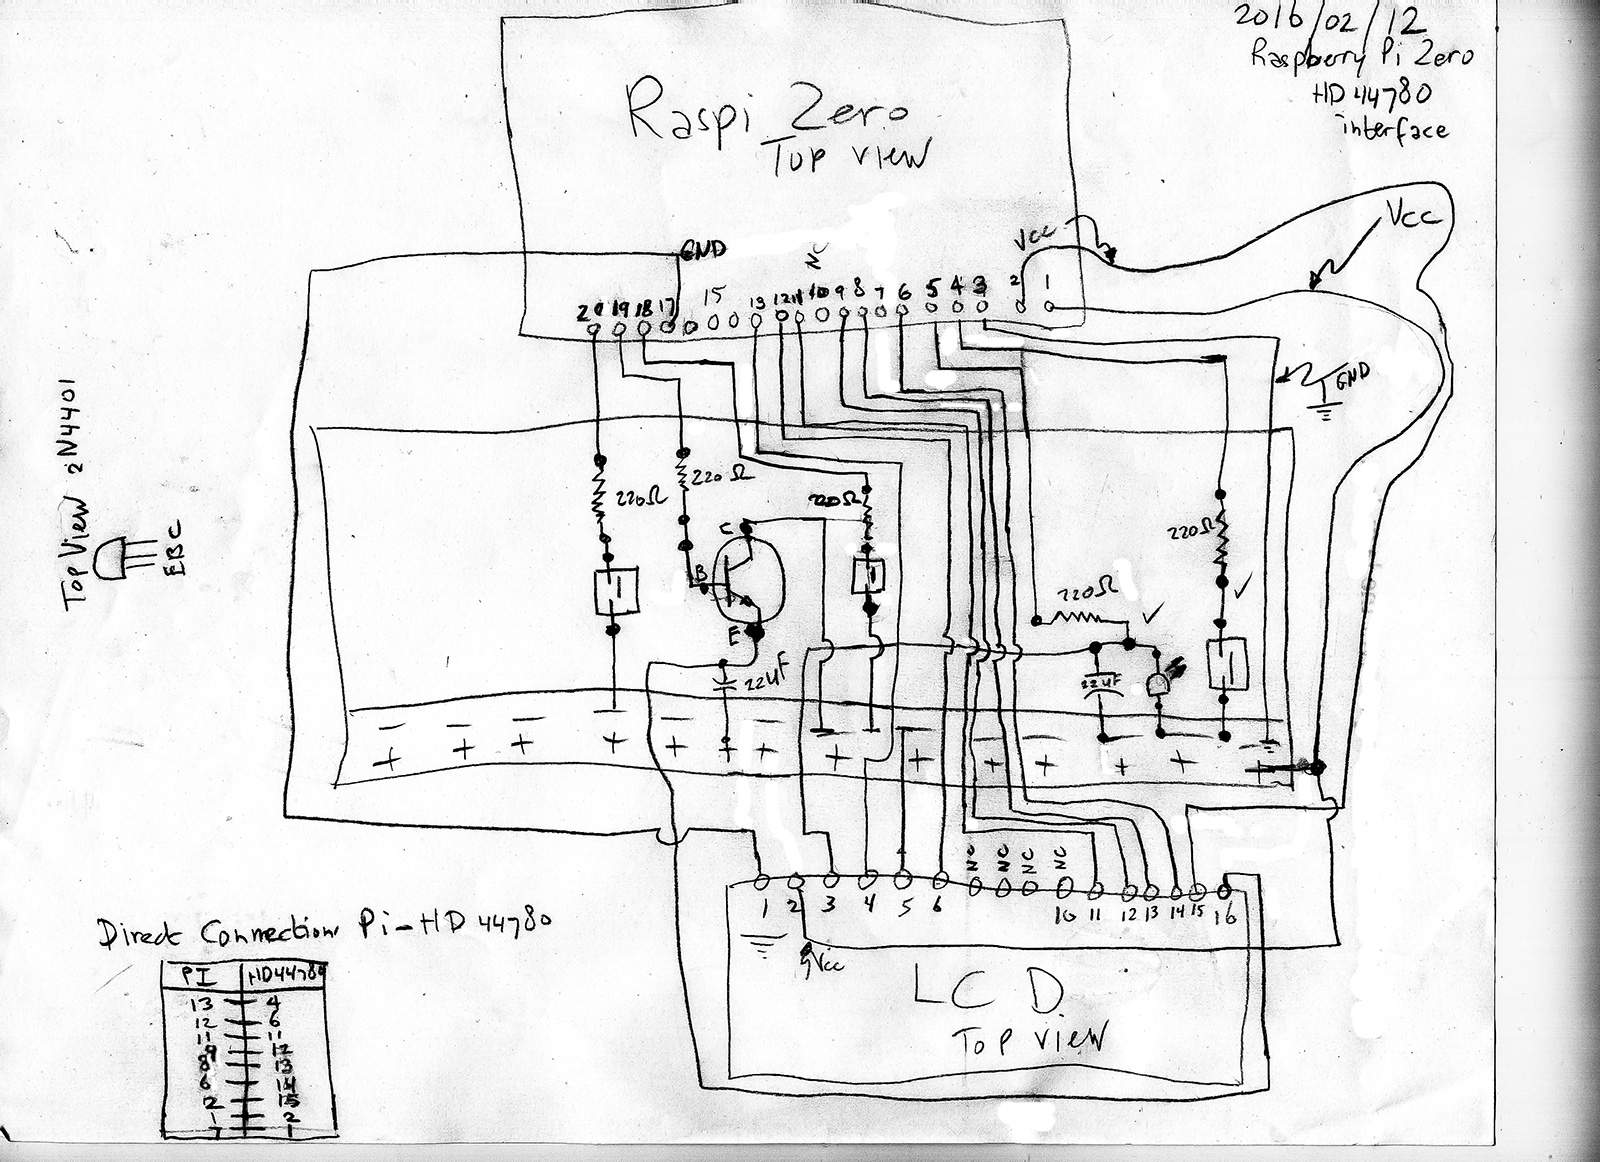 2016/02/12
Raspberry Pi Zero
HD44780
interface
Raspi Zero
Top view
Vcc
Vcc
GND
NC
20 19 18 17 15 13 12 11 10 9 8 7 6 5 4 3 2 1
GND
Top View 2N4401
EBC
220Ω
220Ω
220Ω
220Ω
220Ω
C
B
E
22uF
22uF
− − − − − − − − − −
+ + + + + + + + + + + +
NC NC NC NC
1 2 3 4 5 6 10 11 12 13 14 15 16
Vcc
LCD
Top view
Direct Connections Pi-HD44780
PI HD44780
13 4
12 6
11 11
9 12
8 13
6 14
2 15
1 2